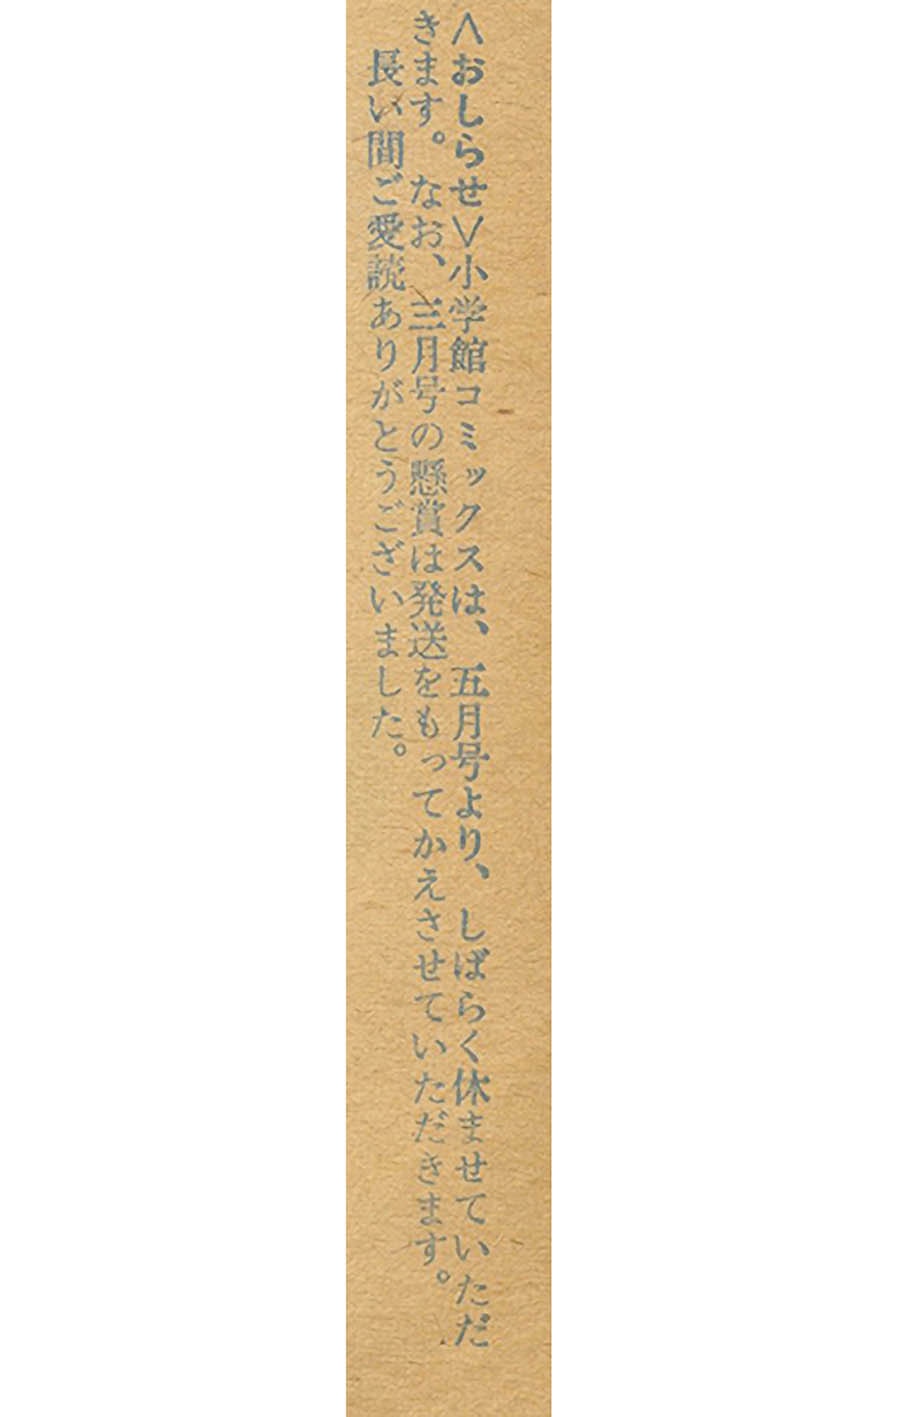 ＜おしらせ＞小学館コミックスは、五月号より、しばらく休ませていただ
きます。なお、三月号の懸賞は発送をもってかえさせていただきます。
長い間ご愛読ありがとうございました。